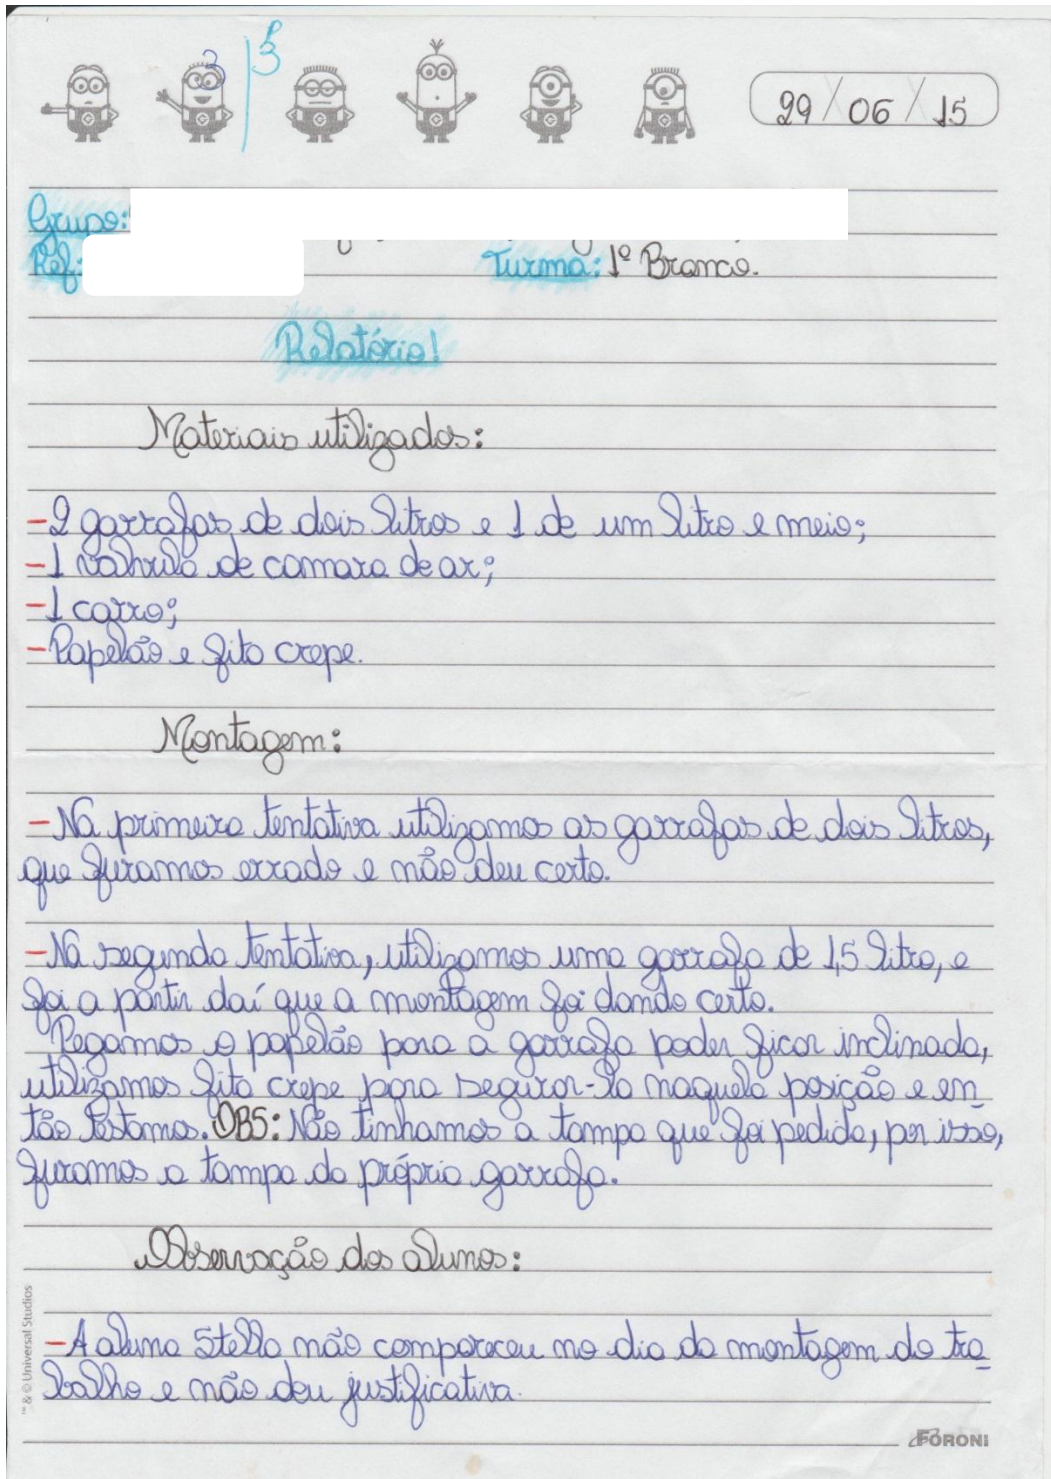 3 3
29/06/15
Grupo:
Ref: Turma: 1º Branco.
Relatório!
Materiais utilizados:
-2 garrafas de dois litros e 1 de um litro e meio;
-1 valvula de camara de ar;
-1 carro;
-Papelão e fita crepe.
Montagem:
-Na primeira tentativa utilizamos as garrafas de dois litros,
que furamos errado e não deu certo.
-Na segunda tentativa, utilizamos uma garrafa de 1,5 litro, e
foi a partir daí que a montagem foi dando certo.
Pegamos o papelão para a garrafa poder ficar inclinada,
utilizamos fita crepe para segurar-la naquela posição e en-
tão testamos. OBS: Não tinhamos a tampa que foi pedida, por isso,
furamos a tampa da própria garrafa.
Observação dos alunos:
-A aluna Stella não compareceu no dia da montagem do tra-
balho e não deu justificativa.
™ & © Universal Studios
FORONI